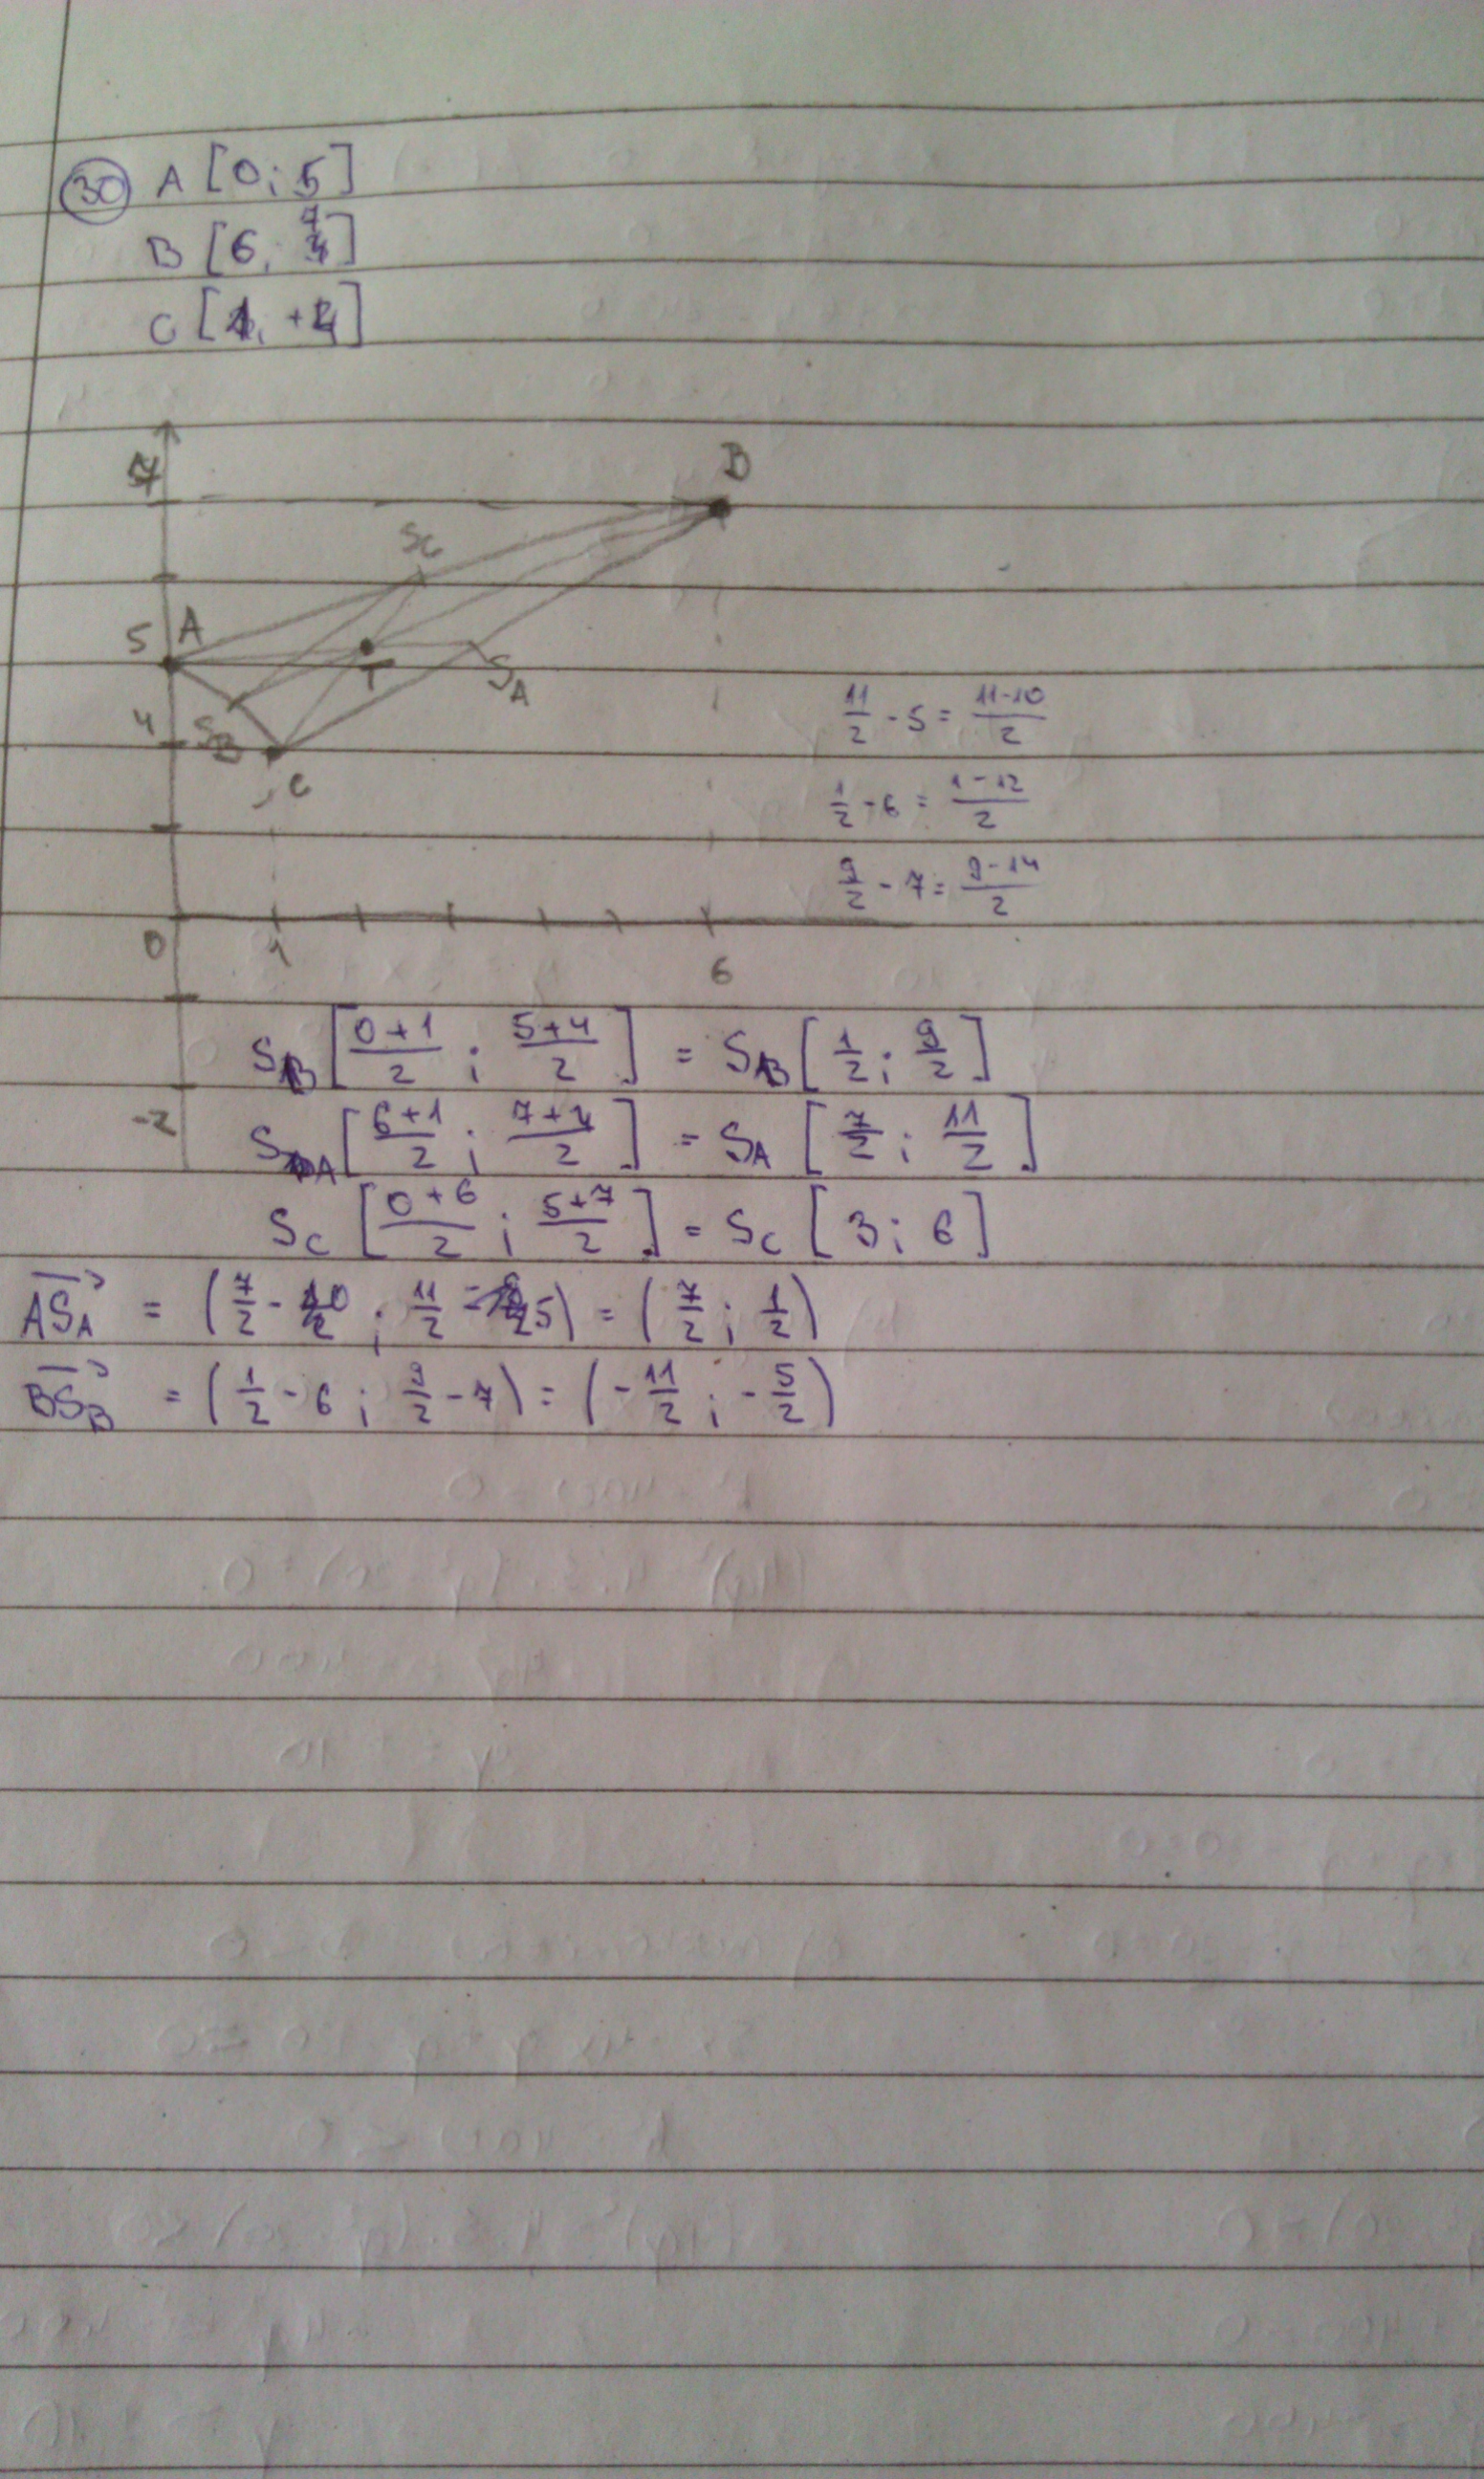 30 A [0; 5]
B [6; 7]
C [1; +4]
7
B
Sc
5 A
T
SA
4 SB
C
11/2 - 5 = 11-10/2
1/2 - 6 = 1-12/2
9/2 - 7 = 9-14/2
0 1 6
SB [0+1/2 ; 5+4/2] = SB [1/2 ; 9/2]
-2
SA [6+1/2 ; 7+4/2] = SA [7/2 ; 11/2]
Sc [0+6/2 ; 5+7/2] = Sc [3 ; 6]
ASA = (7/2 - 0 ; 11/2 - 5) = (7/2 ; 1/2)
BSB = (1/2 - 6 ; 9/2 - 7) = (-11/2 ; -5/2)